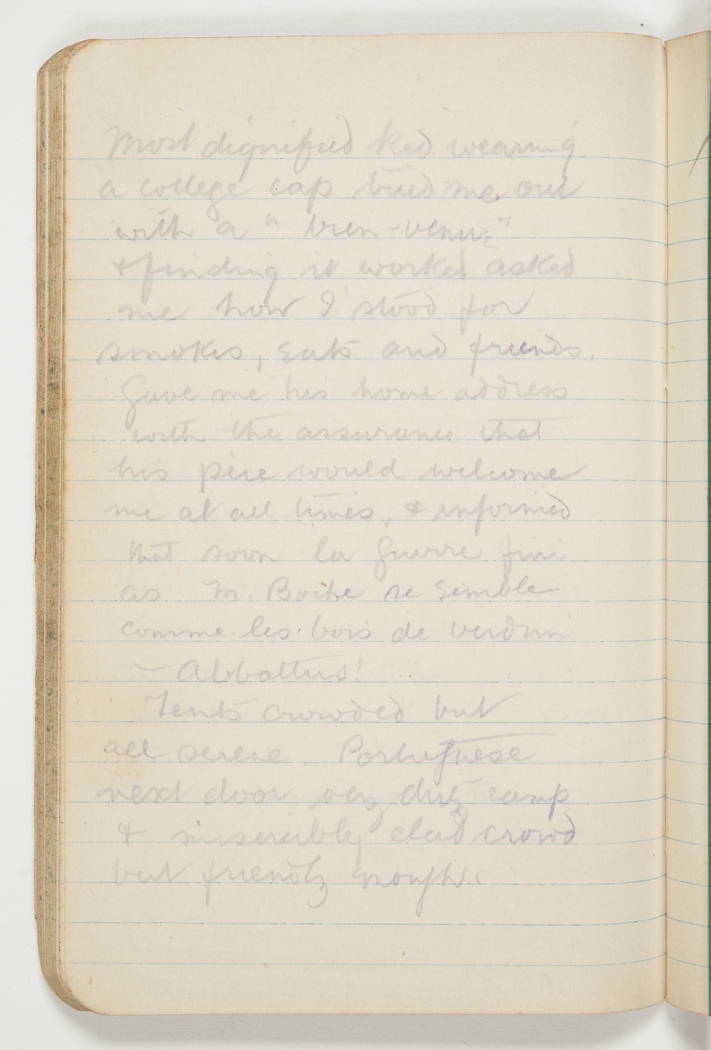 Most dignified kid wearing
a college cap tried me out
with a "bien-venue"
& finding it worked asked
me how I stood for
smokes, eats and friends.
Gave me his home address
with the assurance that
his père would welcome
me at all times, & informed
that soon la Guerre fini
as M. Boche se semble
comme les bois de Verdun
– Abbattus!
Tents crowded but
all serene. Portuguese
next door very dirty camp
& miserably clad crowd
but friendly enough.